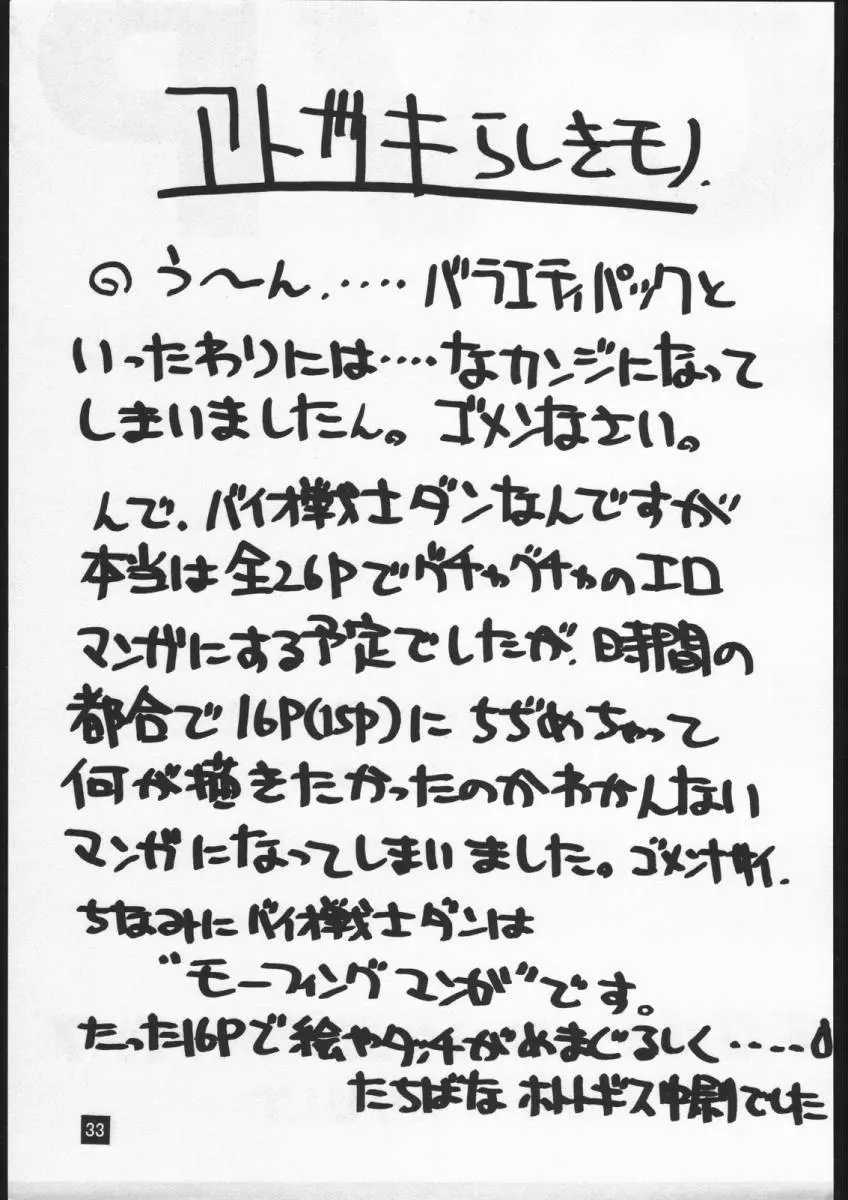 アトガキらしきモノ.
のう〜ん.‥‥バラエティパックと
いったわりには‥‥なカンジになって
しまいましたん。ゴメンなさい。
んで、バイオ戦士ダンなんですが
本当は全26Pでグチャグチャのエロ
マンガにする予定でしたが、時間の
都合で16P(15P)にちぢめちゃって
何が描きたかったのかわかんない
マンガになってしまいました。ゴメンナサイ.
ちなみにバイオ戦士ダンは
"モーフィングマンガ"です。
たった16Pで絵やタッチがめまぐるしく‥‥
たちばな ホトトギス中尉でした
33